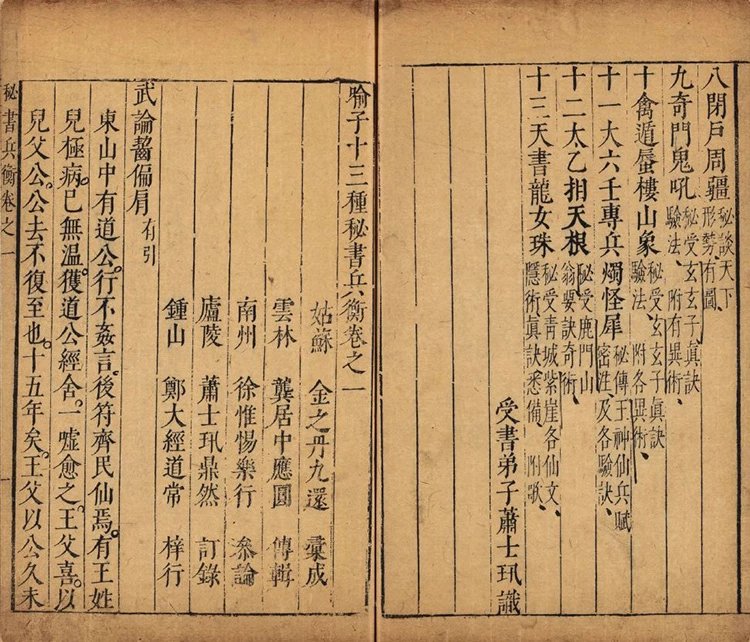 八閉戶周疆 秘談天下形勢有圖、
九奇門鬼吼 秘受玄玄子眞訣驗法、附有異術、
十禽遁蜃樓山象 秘受玄玄子眞訣驗法、附各異術、
十一大六壬專兵燭怪犀 秘傳王神仙兵賦密泄、及各驗訣、
十二太乙相天根 秘受鹿門山翁嬰訣奇術、
十三天書龍女珠 秘受靑城紫崖各仙文隱術、眞訣悉備、附歌、
受書弟子蕭士玑識
喻子十三種秘書兵衡卷之一
姑蘇 金之丹九還 彚成
雲林 龔居中應圓 傳輯
南州 徐惟惕樂行 叅論
廬陵 蕭士玑鼎然 訂錄
鍾山 鄭大經道常 梓行
武論齧偏肩 有引
東山中有道公。行不姦言。後符齊民仙焉。有王姓
兒極病。已無溫。獲道公經舍。一噓愈之。王父喜。以
兒父公。公去不復至也。十五年矣。王父以公久未
秘書兵衡卷之一